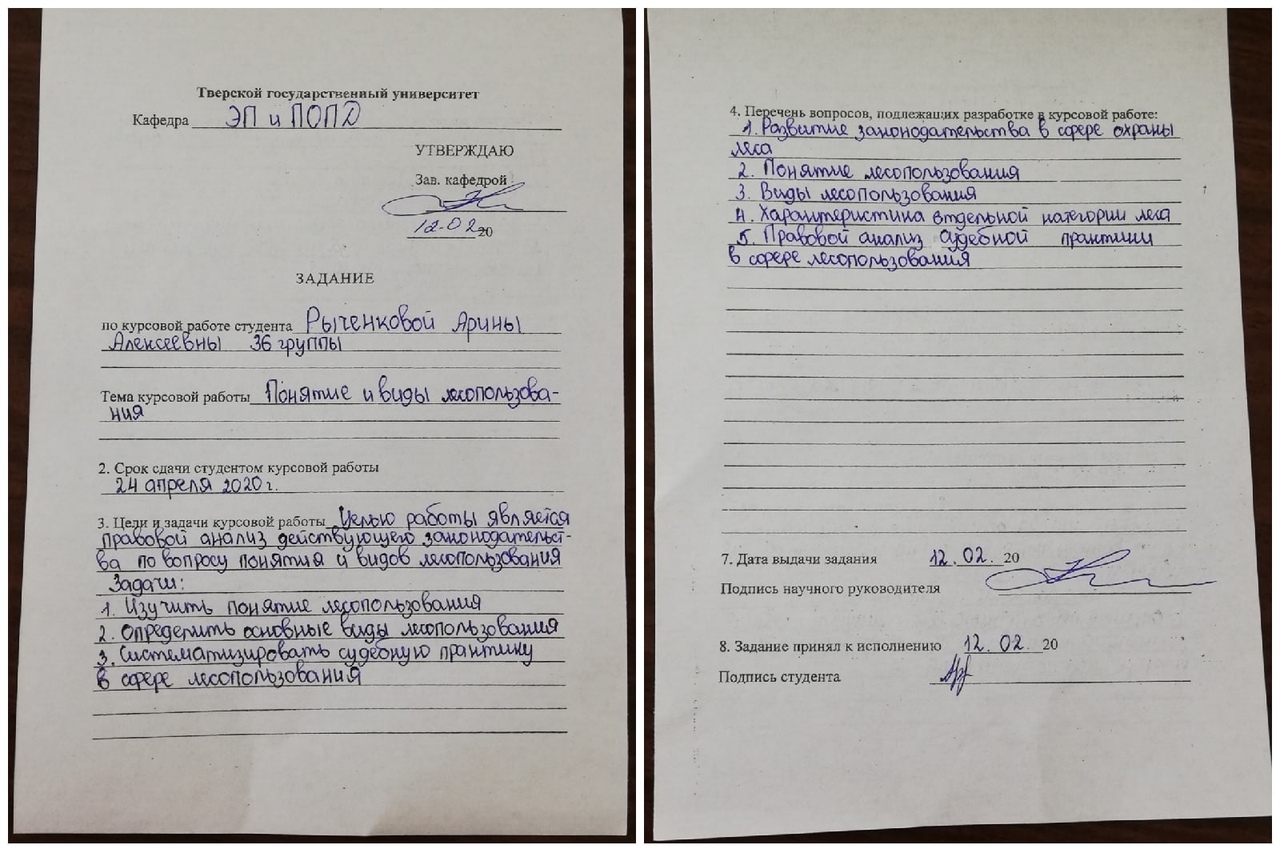 Тверской государственный университет
Кафедра ЭП и ПОПД
УТВЕРЖДАЮ
Зав. кафедрой
12.02.20
ЗАДАНИЕ
по курсовой работе студента Рыченковой Арины
Алексеевны 36 группы
Тема курсовой работы Понятие и виды лесопользова-
ния
2. Срок сдачи студентом курсовой работы
24 апреля 2020 г.
3. Цели и задачи курсовой работы Целью работы является
правовой анализ действующего законодательст-
ва по вопросу понятия и видов лесопользования
Задачи:
1. Изучить понятие лесопользования
2. Определить основные виды лесопользования
3. Систематизировать судебную практику
в сфере лесопользования
4. Перечень вопросов, подлежащих разработке в курсовой работе:
1. Развитие законодательства в сфере охраны
леса
2. Понятие лесопользования
3. Виды лесопользования
4. Характеристика отдельной категории леса
5. Правовой анализ судебной практики
в сфере лесопользования
7. Дата выдачи задания 12.02.20
Подпись научного руководителя
8. Задание принял к исполнению 12.02.20
Подпись студента